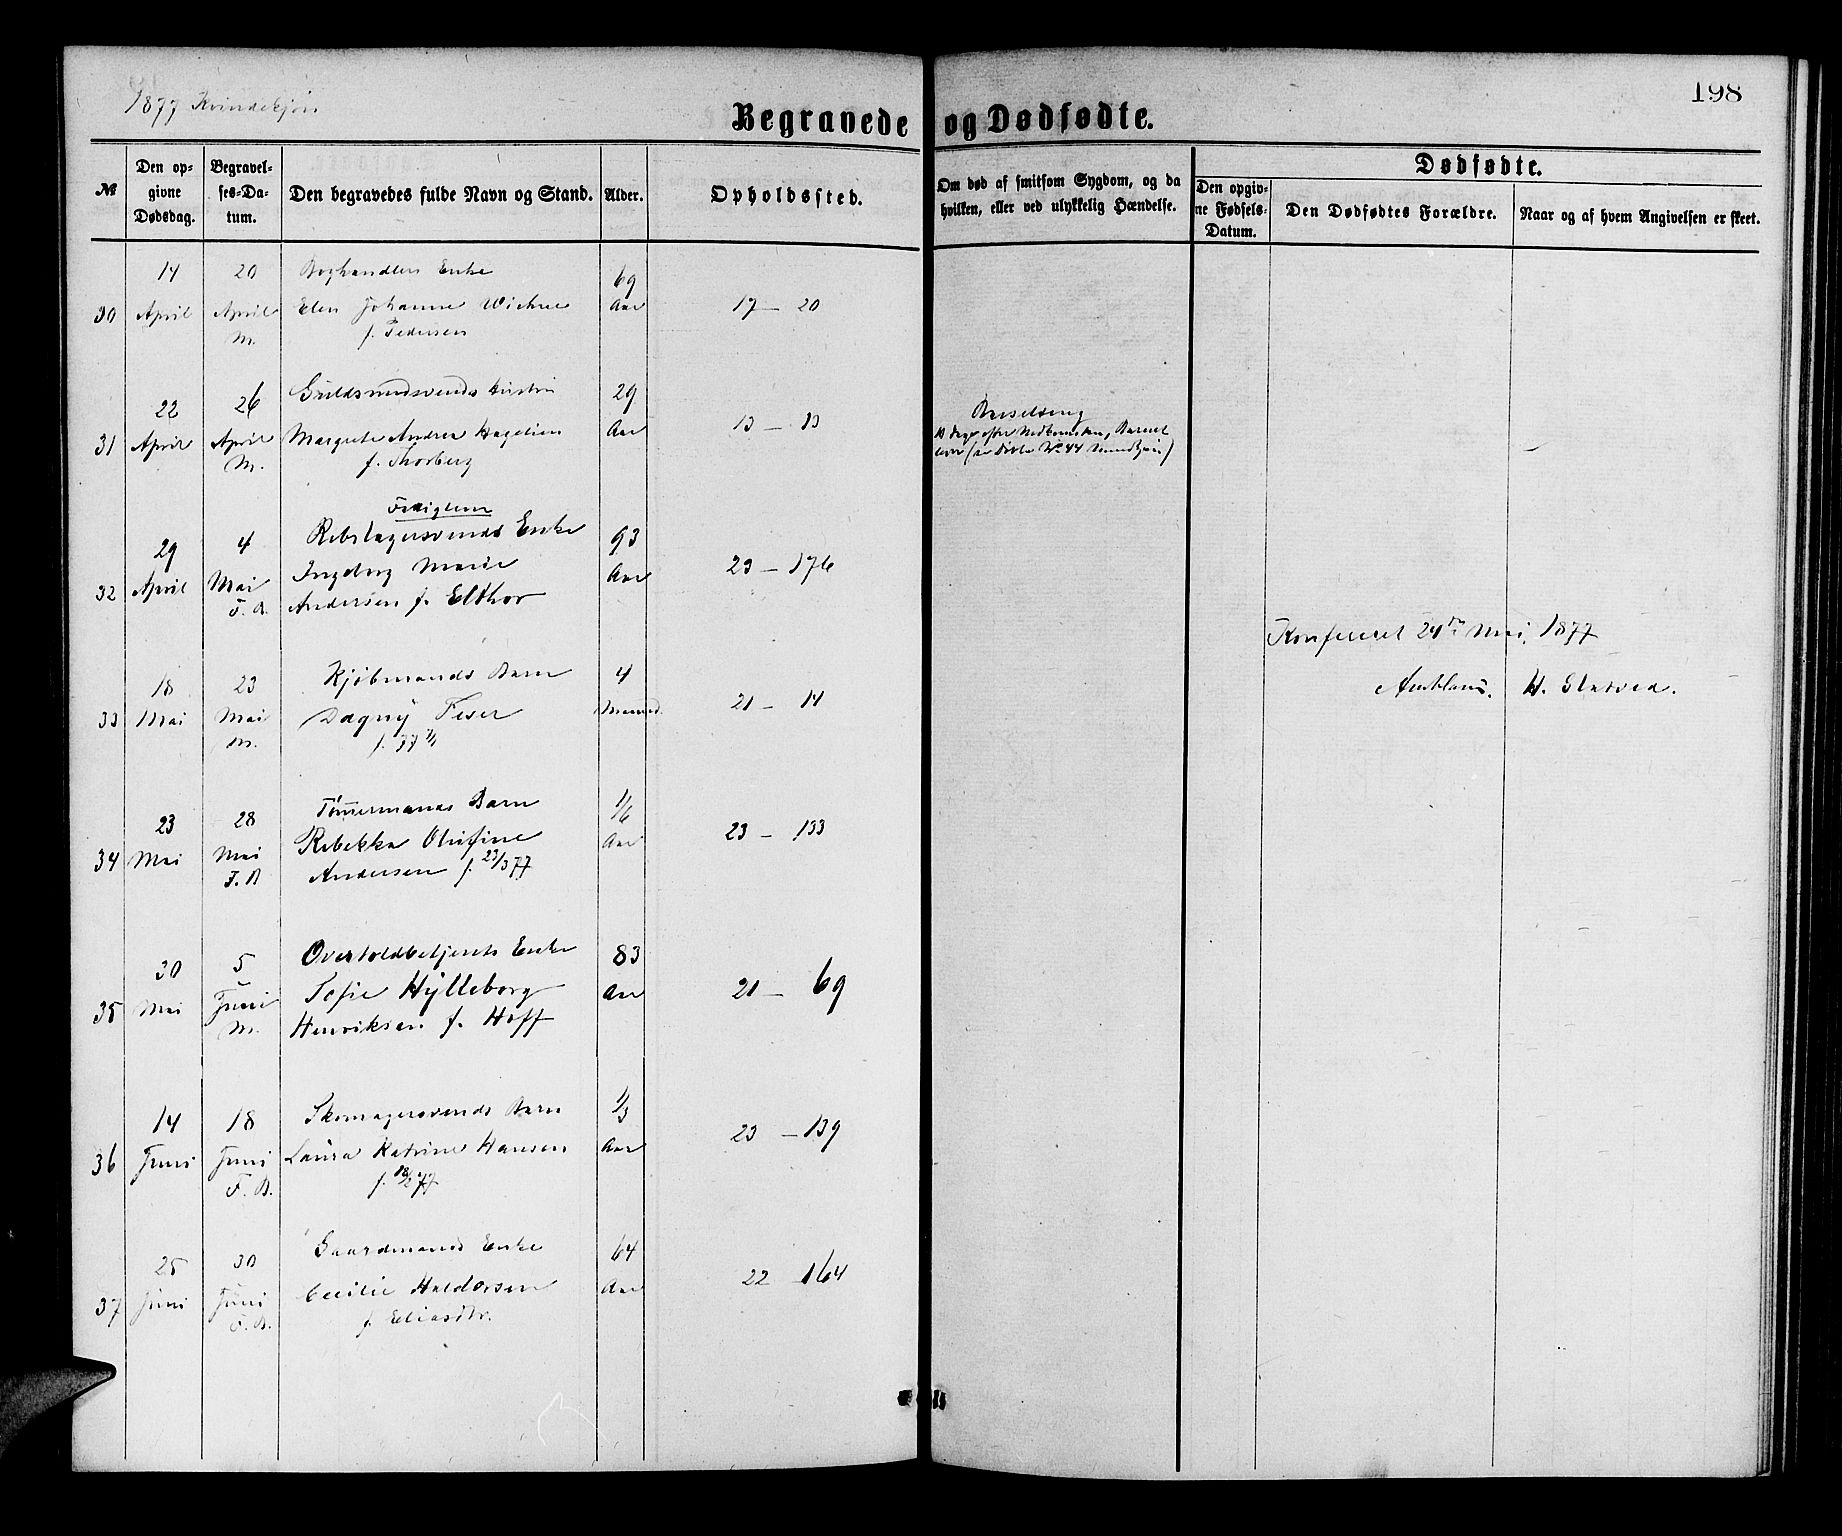 198
1877 Kvindekjøn
Begravede og Dødfødte.
№
Den opgivne Dødsdag.
Begravelses-Datum.
Den begravedes fulde Navn og Stand.
Alder.
Opholdssted.
Om død af smitsom Sygdom, og da hvilken, eller ved ulykkelig Hændelse.
Dødfødte.
Den opgivne Fødsels-Datum.
Den Dødfødtes Forældre.
Naar og af hvem Angivelsen er skeet.
30
14 April
20 April M.
Boghandlers Enke
Elen Johanne
f. Pedersen
69 Aar
17 — 20
31
22 April
26 April M.
Guldsmedsvends Hustru
Margrete Andrea Hagelien
f. Thorberg
29 Aar
13 — 13
Barselseng
10 Dage efter Nedkomsten, Barnet
lever (se Døbte No 44 Mandkjøn)
32
29 April
4 Mai F. B.
Fattiglem
Rebslagersvends Enke
Ingeborg Marie
Andersen f. Elthor
93 Aar
23 — 176
Konfereret 24de Mai 1877
H.
33
18 Mai
23 Mai M.
Kjøbmands Barn
Dagny
f. 77
4 Maaned.
21 — 14
34
23 Mai
28 Mai F. B
Tømermands Barn
Rebekka Olufine
Andersen f. 23/3 77
1/6 Aar
23 — 133
35
30 Mai
5 Juni M.
Overtoldbetjents Enke
Sofie Hylleborg
Henriksen f. Hoff
83 Aar
21 — 69
36
14 Juni
18 Juni F. B.
Skomagersvends Barn
Laura Katrine Hansen
f. 18/2 77
1/3 Aar
23 — 139
37
25 Juni
30 Juni F. B.
Gaardmands Enke
Cecilie Haldorsen
f. Eliasdtr.
64 Aar
22 — 164